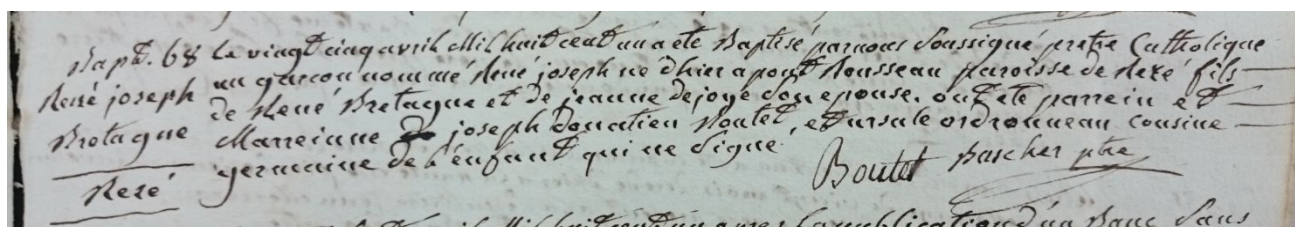 Bapt. 68
René joseph
Bretagne
Rezé
Le vingt cinq avril Mil huit cent un a ete Baptisé par nous Soussigné pretre Catholique
un garcon nommé René joseph ne d'hier a pont Rousseau paroisse de Rezé fils
de René Bretagne et de jeanne dejoye son epouse. ont ete parrein et
Marreinne joseph donatien Boutet, et ursule ordronneau cousine
germaine de l'enfant qui ne Signe
Boutet pascher ptre
Mil huit cent un apres la publication d'un Banc Sans